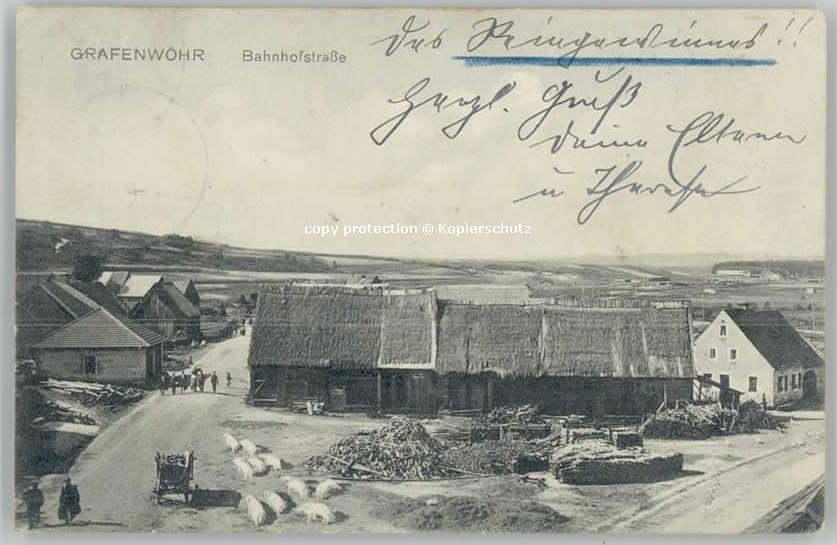 GRAFENWÖHR Bahnhofstraße
des Reingewinnes!!
Herzl. Gruß
deine Eltern
u Therese
copy protection © Kopierschutz